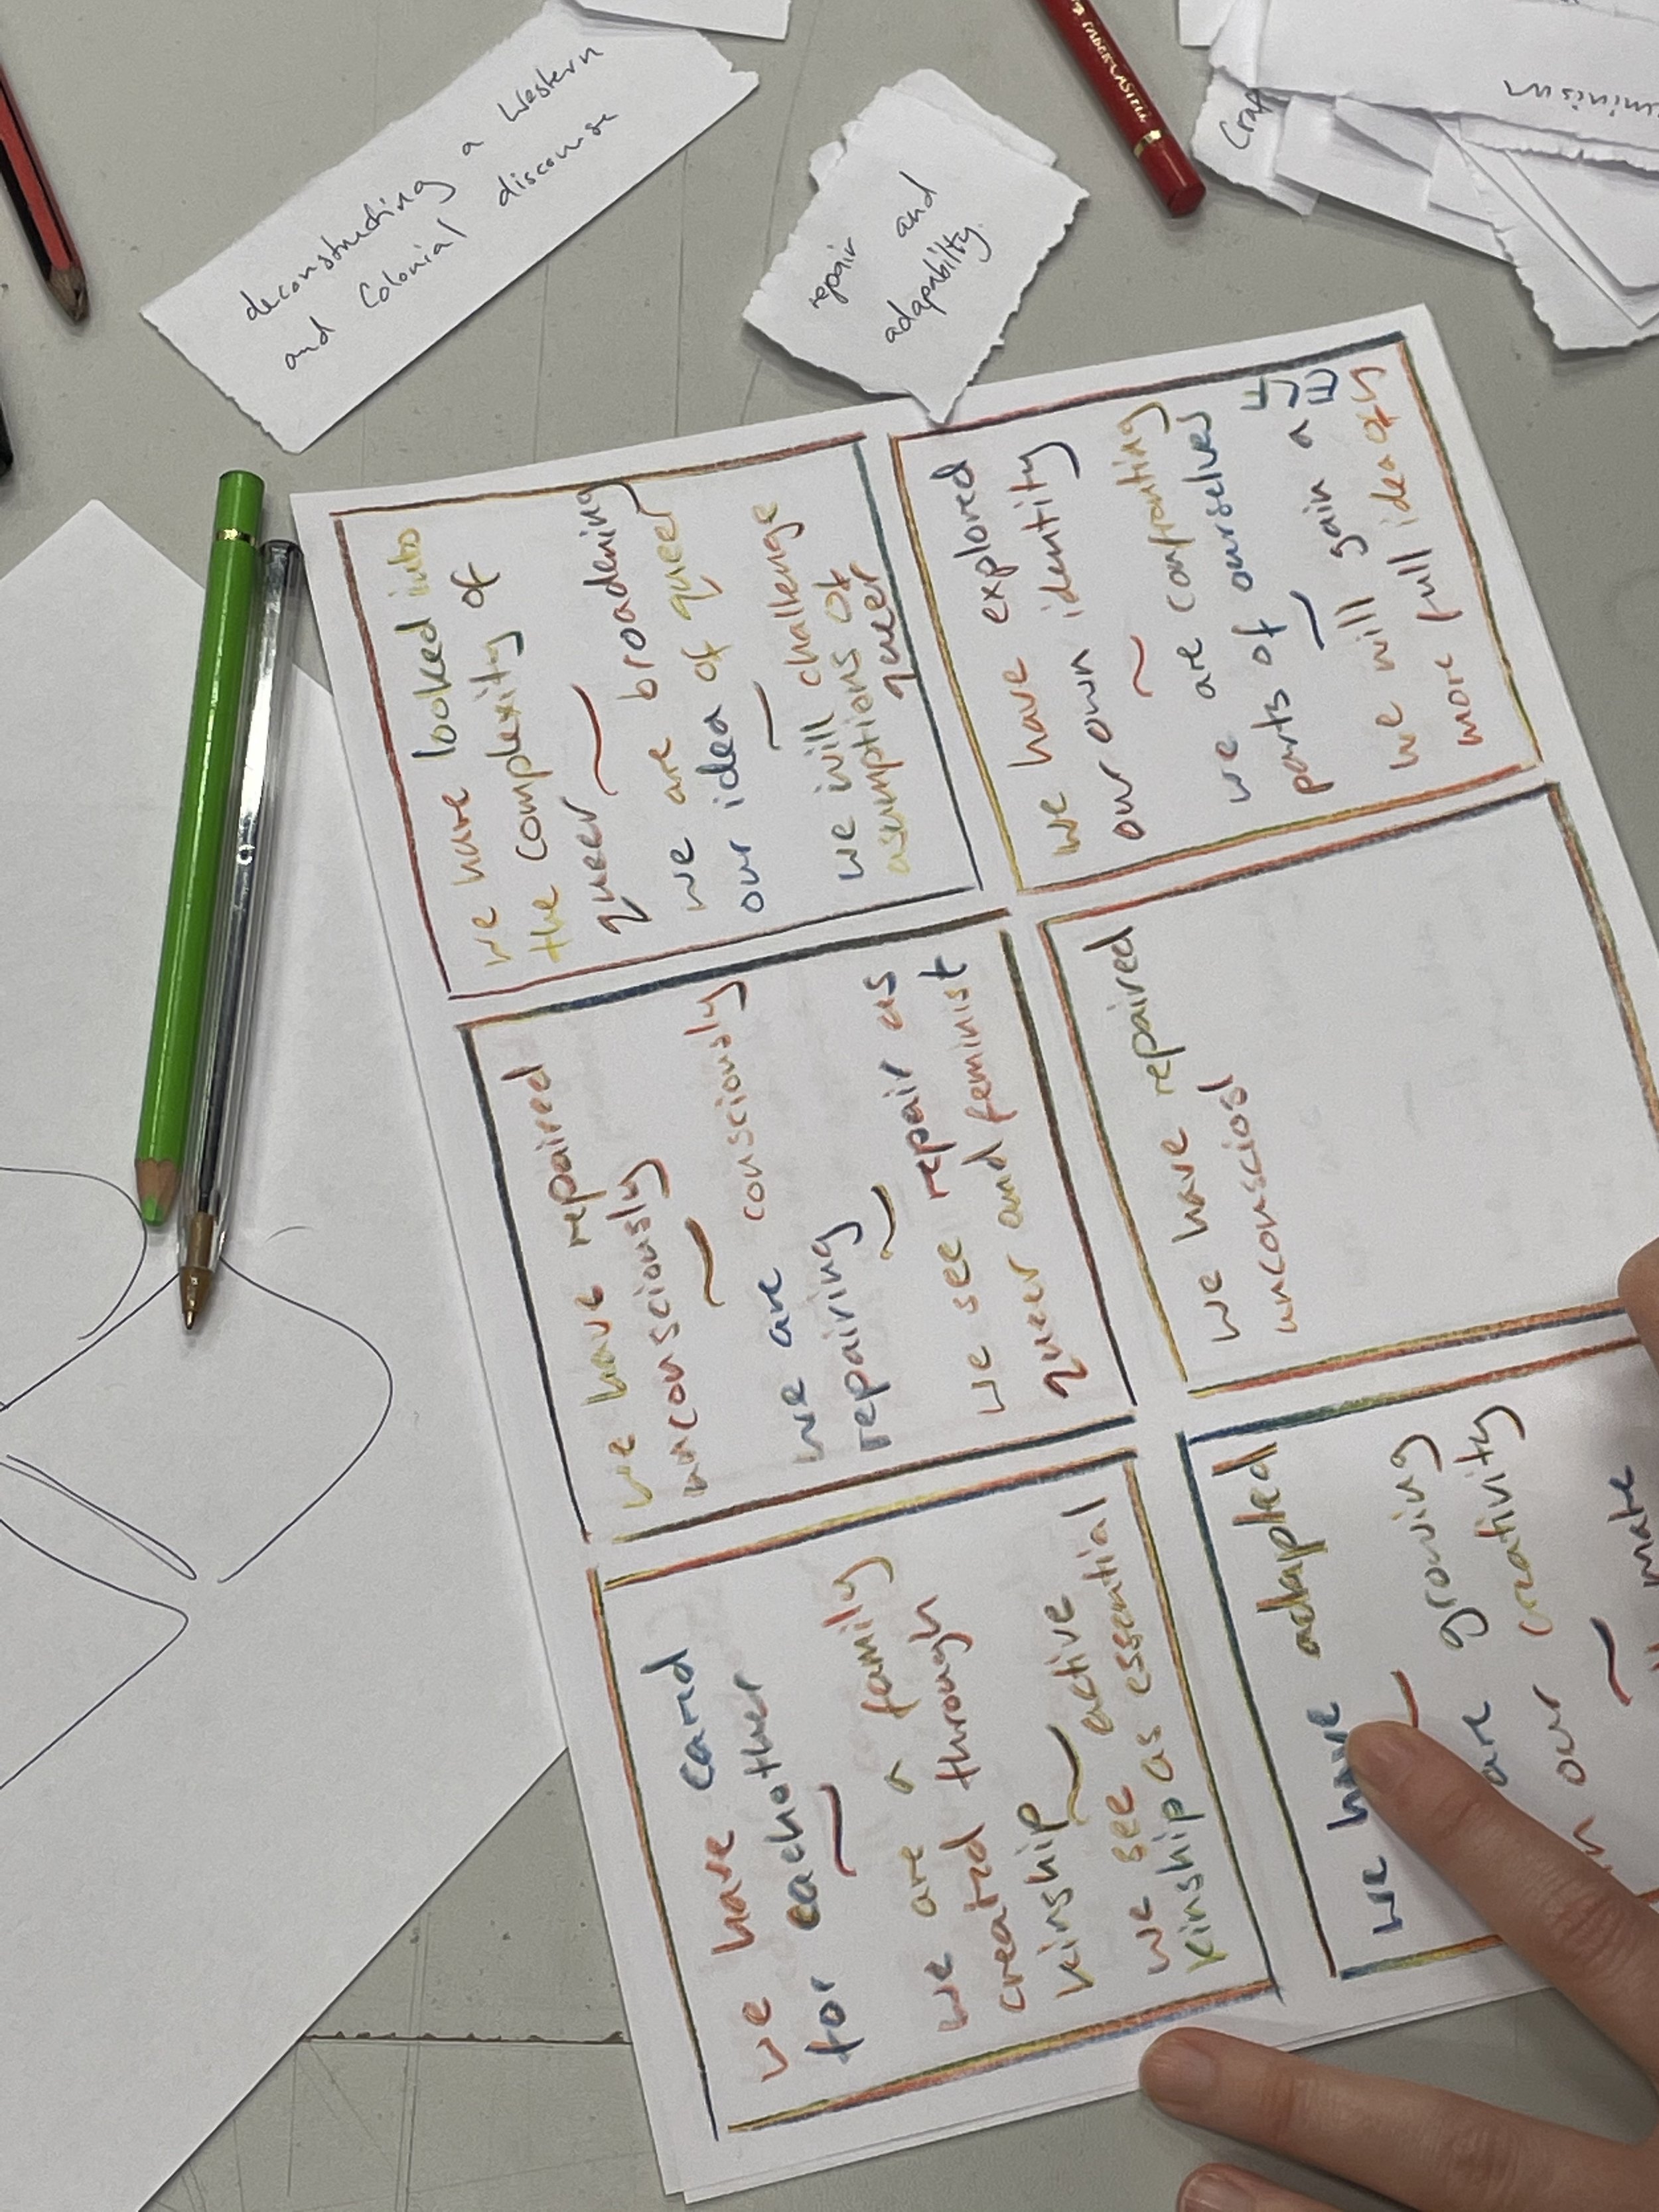 deconstructing a Western
and Colonial discourse
repair and
adapability.
Craf
we have card
for eachother
~
we are a family
created through
kinship
~
we see active
kinship as essential
we have repaired
unconsciously
~
we are consciously
repairing
~
we see repair as
queer and feminist
we have looked into
the complexity of
queer
~
we are broadening
our idea of queer
~
we will challenge
asumptions of
queer
we have adapted
~
are growing
our creativity
~
make
we have repaired
unconsciosl
we have explored
our own identity
~
we are confronting
parts of ourselves
~
we will gain a
more full idea of